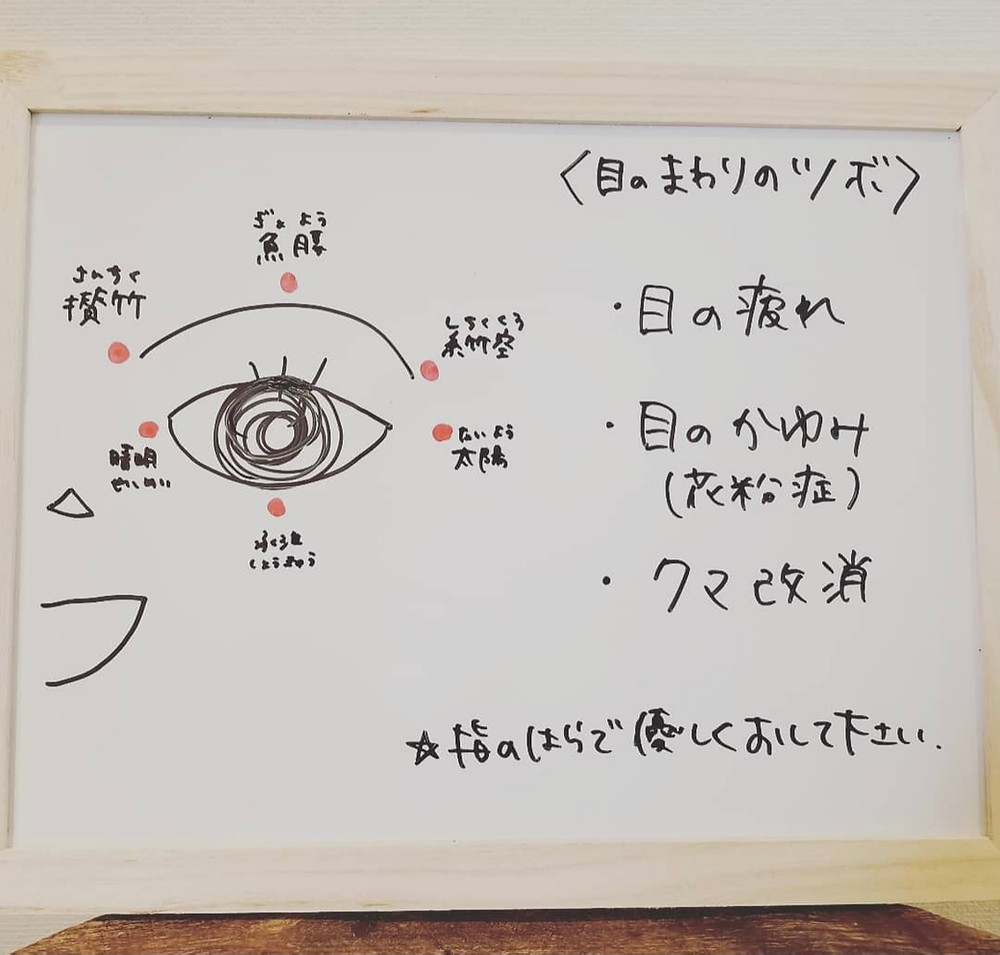 〈目のまわりのツボ〉
ぎょよう
魚腰
さんちく
攅竹
しちくくう
糸竹空
たいよう
太陽
睛明
せいめい
しょうきゅう
・目の疲れ
・目のかゆみ
(花粉症)
・クマ改消
☆指のはらで優しくおして下さい.